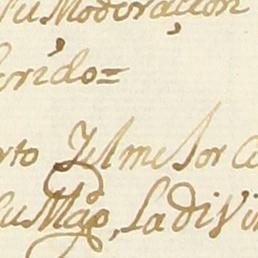 su Moderaçion
erido=
rto Jel me Jor
su Magᵒ, La diVi